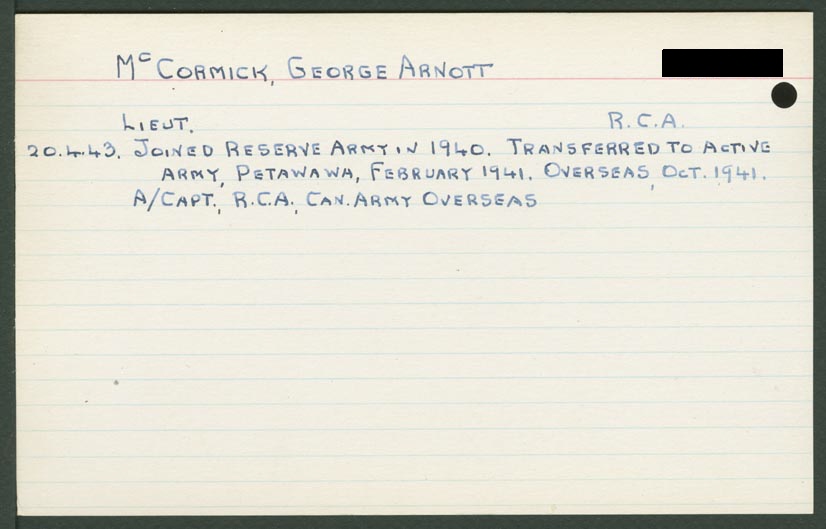 McCORMICK, GEORGE ARNOTT
LIEUT. R.C.A.
20.4.43. JOINED RESERVE ARMY IN 1940. TRANSFERRED TO ACTIVE
ARMY, PETAWAWA, FEBRUARY 1941. OVERSEAS, OCT. 1941.
A/CAPT., R.C.A., CAN. ARMY OVERSEAS